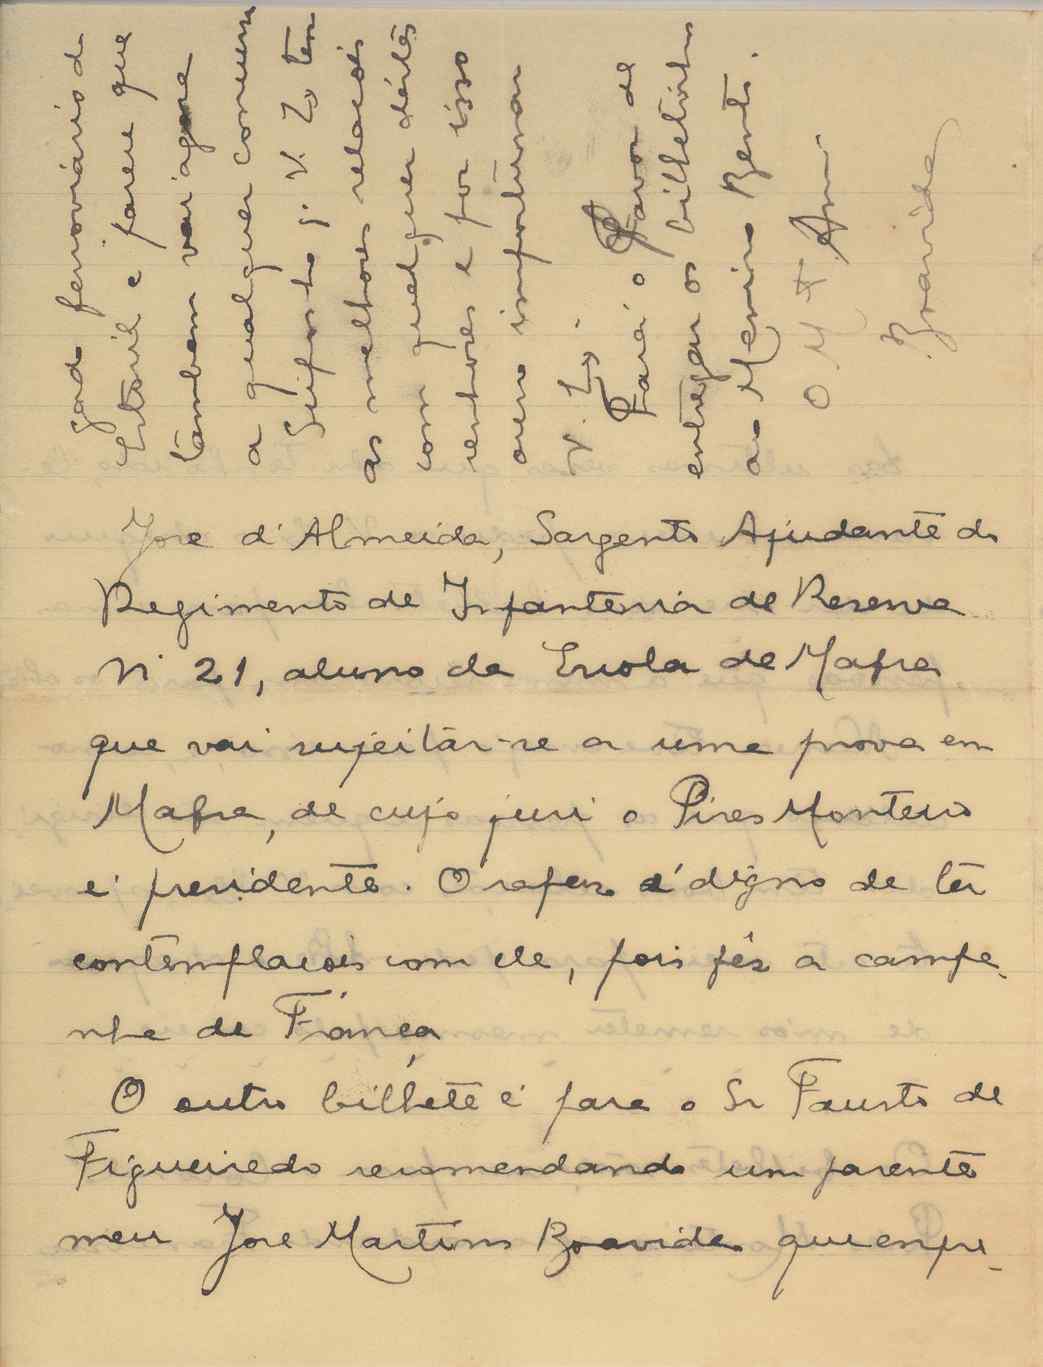 Jose d'Almeida, Sargento Ajudante do
Regimento de Infanteria de Reserva
Nº 21, aluno da Escola de Mafra
que vai sujeitar-se a uma prova em
Mafra, de cujo juri o Pires Monteiro
é presidente. O rapaz é digno de ter
contemplações com ele, pois fez a campa-
nha de França
O outro bilhete é para o Sr Fausto de
Figueiredo recomendando um parente
meu Jose Martins Boavida que empre-
gado ferroviário do
Estoril e parece que
tambem vai agora
a qualquer comum
V. Exª tem
as melhores relações
com quaesquer destes
senhores e por isso
ouso importunar
V. Exª.
Fará o favor de
entregar os bilhetinhos
ao Menino Bento.
O Mto Amº
Boavida